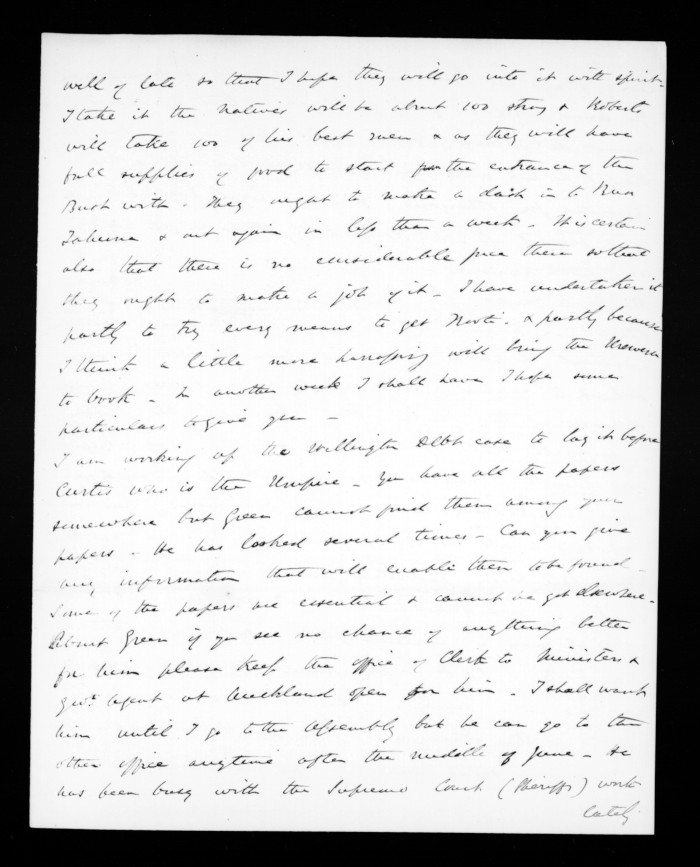 well of late so that I hope they will go into it with spirit.
I take it the Natives will be about 100 strong & Roberts
will take 100 of his best men & as they will have
full supplies of food to start from the entrance of the
Bush with. They ought to make a dash in to Rua
Tahuna & out again in less than a week. It is certain
also that there is no considerable force there so that
they ought to make a job of it. I have undertaken it
partly to try every means to get Kooti. & partly because
I think a little more harrassing will bring the Urewera
to book. In another week I shall have I hope some
particulars to give you —
I am working up the Wellington Debt case to lay it before
Curtis who is the Umpire. You have all the papers
somewhere but Green cannot find them among your
papers. He has looked several times. Can you give
any information that will enable them to be found.
Some of the papers are essential & cannot be got elsewhere.
About Green if you see no chance of anything better
for him please keep the office of Clerk to Ministers &
Govt. Agent at Auckland open for him. I shall want
him until I go to the Assembly but he can go to the
other office anytime after the middle of June. He
has been busy with the Supreme Court (Sheriffs) work
lately